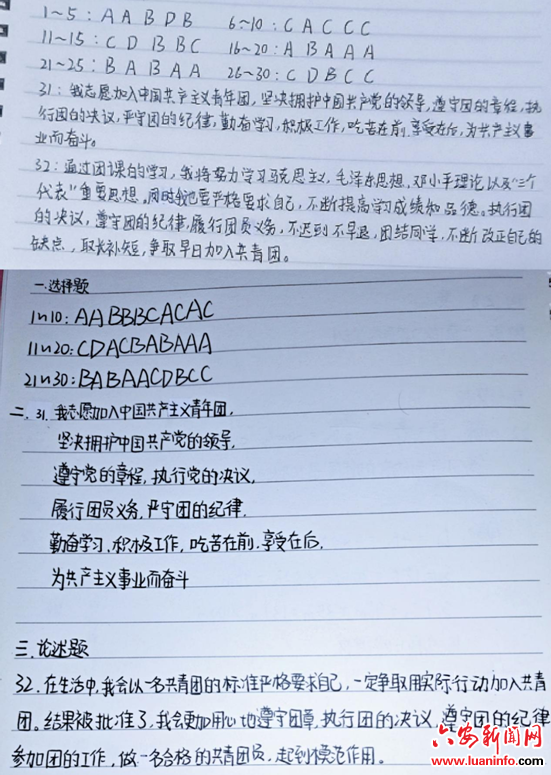 1~5：A A B D B 6~10：C A C C C
11~15：C D B B C 16~20：A B A A A
21~25：B A B A A 26~30：C D B C C
31：我志愿加入中国共产主义青年团，坚决拥护中国共产党的领导，遵守团的章程，执
行团的决议，严守团的纪律，勤奋学习，积极工作，吃苦在前，享受在后，为共产主义事
业而奋斗。
32：通过团课的学习，我将努力学习马克思主义，毛泽东思想，邓小平理论以及“三个
代表”重要思想，同时我也要严格要求自己，不断提高学习成绩和品德。执行团
的决议，遵守团的纪律，履行团员义务，不迟到不早退，团结同学，不断改正自己的
缺点，取长补短，争取早日加入共青团。
一.选择题
1~10：AABBBCACAC
11~20：CDACBABAAA
21~30：BABAACDBCC
二、31.我志愿加入中国共产主义青年团，
坚决拥护中国共产党的领导，
遵守党的章程，执行党的决议，
履行团员义务，严守团的纪律，
勤奋学习，积极工作，吃苦在前，享受在后，
为共产主义事业而奋斗
三.论述题
32.在生活中，我会以一名共青团的标准严格要求自己，一定争取用实际行动加入共青
团。结果被批准了，我会更加用心地遵守团章，执行团的决议，遵守团的纪律
参加团的工作，做一名合格的共青团员，起到模范作用。
六安新闻网
www.luaninfo.com